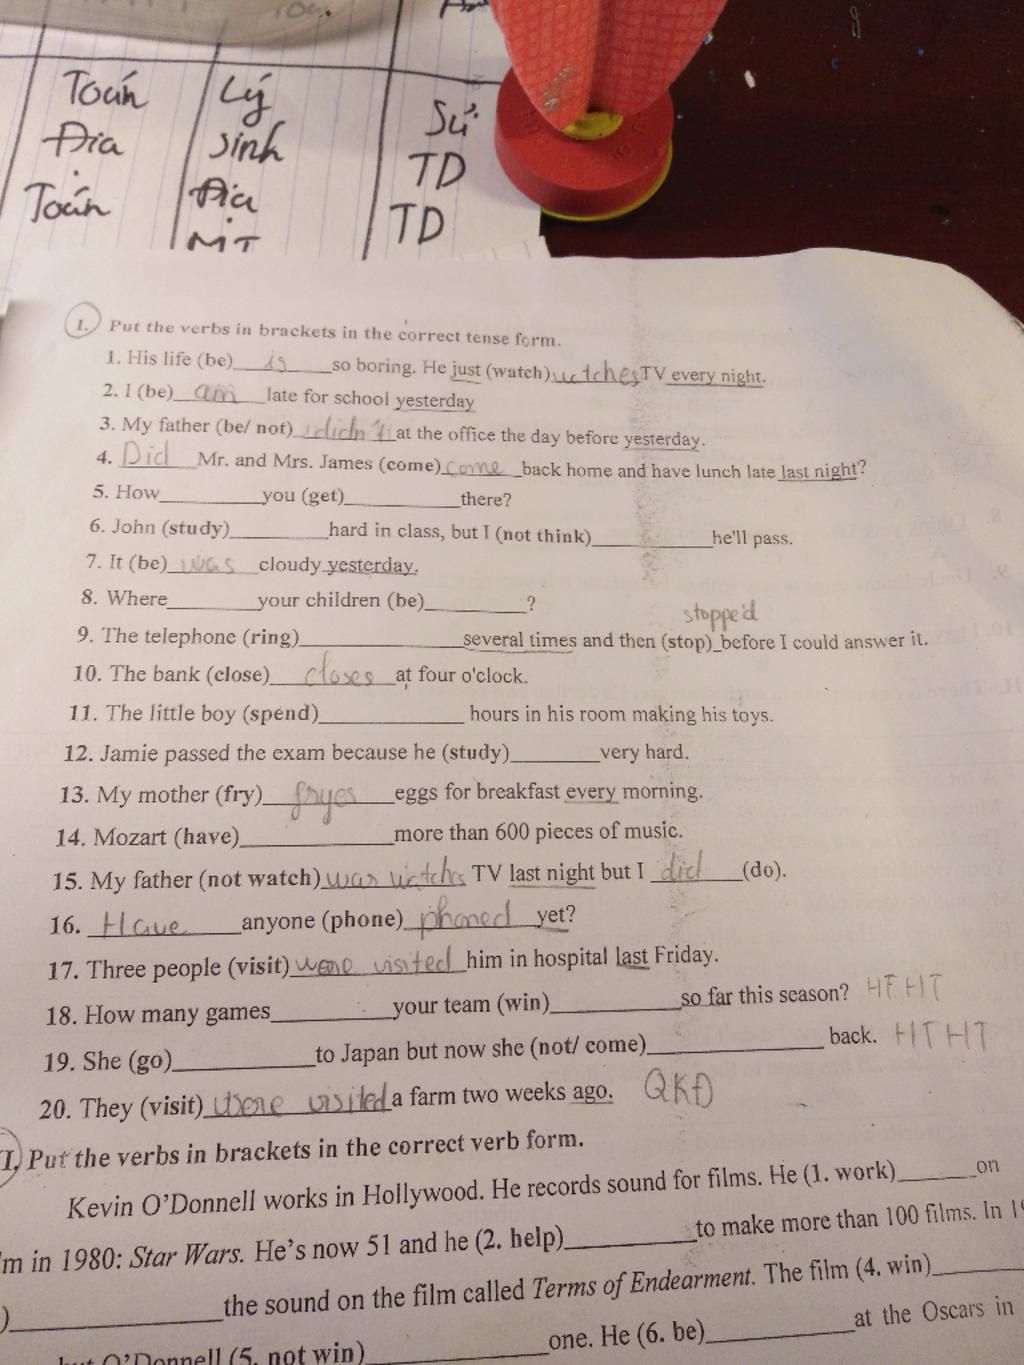 Toán Lý Sử
Địa Sinh TD
Toán Địa TD
MT
I. Put the verbs in brackets in the correct tense form.
1. His life (be) is so boring. He just (watch) watches TV every night.
2. I (be) am late for school yesterday
3. My father (be/ not) didn't at the office the day before yesterday.
4. Did Mr. and Mrs. James (come) come back home and have lunch late last night?
5. How________you (get)_________there?
6. John (study)________hard in class, but I (not think)__________he'll pass.
7. It (be) was cloudy yesterday.
8. Where_______your children (be)________?
stopped
9. The telephone (ring)_____________several times and then (stop)_before I could answer it.
10. The bank (close) closes at four o'clock.
11. The little boy (spend)____________ hours in his room making his toys.
12. Jamie passed the exam because he (study)_______very hard.
13. My mother (fry) fryes eggs for breakfast every morning.
14. Mozart (have)____________more than 600 pieces of music.
15. My father (not watch) was watches TV last night but I did (do).
16. Have anyone (phone) phoned yet?
17. Three people (visit) were visited him in hospital last Friday.
18. How many games_________your team (win)__________so far this season? HTHT
19. She (go)___________to Japan but now she (not/ come)_____________ back. HTHT
20. They (visit) were visited a farm two weeks ago. QKĐ
Put the verbs in brackets in the correct verb form.
Kevin O'Donnell works in Hollywood. He records sound for films. He (1. work)______on
in 1980: Star Wars. He's now 51 and he (2. help)_________to make more than 100 films. In
)_______________the sound on the film called Terms of Endearment. The film (4. win)______
O'Donnell (5. not win)____________one. He (6. be)__________at the Oscars in